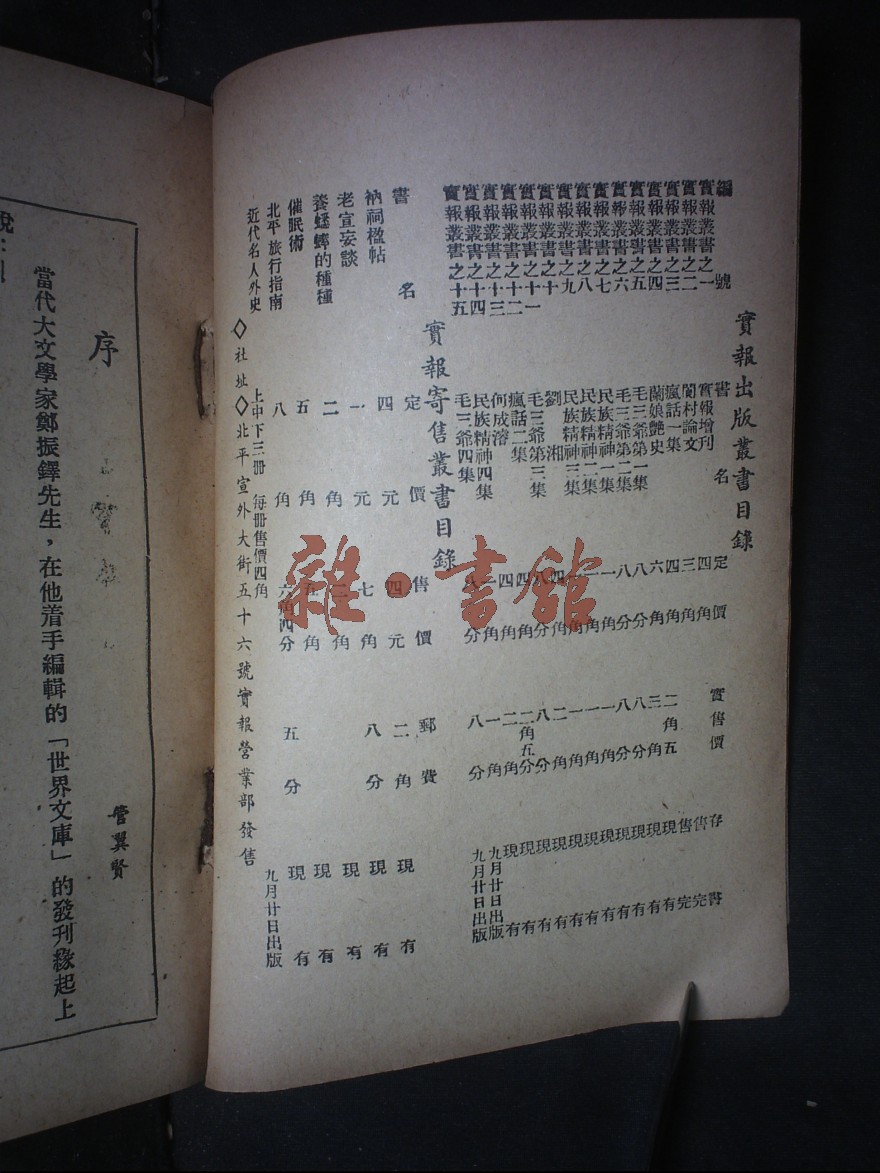 實報出版叢書目錄
編號 書名 定價 實售價 存書
實報叢書之一 實報增刊 四角 售完
實報叢書之二 閒村論文 三角 售完
實報叢書之三 瘋話一集 四角 二角五 現有
實報叢書之四 蘭娘艷史 六角 三角 現有
實報叢書之五 毛三爺第一集 八分 八分 現有
實報叢書之六 毛三爺第二集 八分 八分 現有
實報叢書之七 民族精神一集 一角 一角 現有
實報叢書之八 民族精神二集 一角 一角 現有
實報叢書之九 民族精神三集 一角 一角 現有
實報叢書之十 劉湘 四角 二角 現有
實報叢書之十一 毛三爺第三集 八分 八分 現有
實報叢書之十二 瘋話二集 四角 二角五分 現有
實報叢書之十三 何成濬 四角 二角 現有
實報叢書之十四 民族精神四集 一角 一角 九月廿日出版
實報叢書之十五 毛三爺四集 八分 八分 九月廿日出版
實報寄售叢書目錄
書名 定價 售價 郵費
衲祠楹帖 四元 四元 二角 現有
老宣妄談 一元 七角 八分 現有
養蟋蟀的種種 二角 二角 現有
催眠術 五角 五角 現有
北平旅行指南 八角 六角四分 五分 現有
近代名人外史 上中下三册 每册售價四角 九月廿日出版
◇社址◇北平宣外大街五十六號實報營業部發售
雜·書館
管翼賢
序
當代大文學家鄭振鐸先生，在他着手編輯的「世界文庫」的發刊緣起上